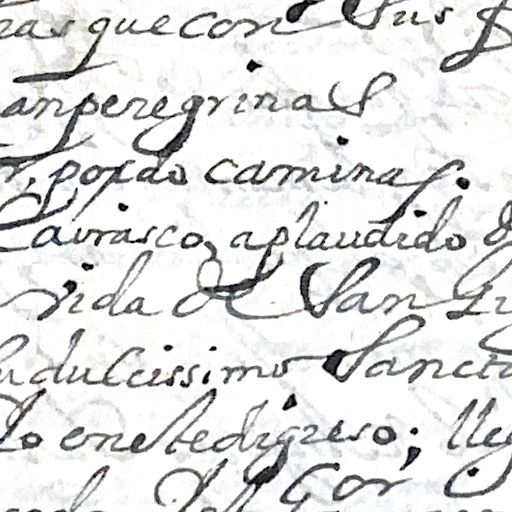 ras que con sus
anperegrinas
por do caminas.
Cairasco, aplaudido
vida de San
su dulcissimo Sancto
lo en este digreso; lleg
Cor